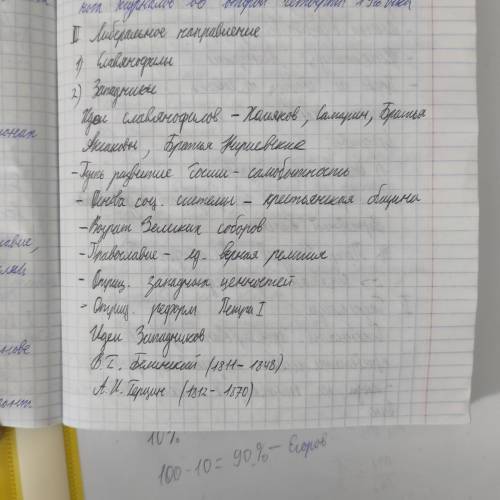 нот журналов во второй четверти 19го века
II Либеральное направление
1) Славянофилы
2) Западники
Идеи славянофилов – Хомяков, Самарин, Братья
Аксаковы, Братья Киреевские
- Путь развитие России - самобытность
- Основа соц. системы – крестьянская община
- Возрат Земских соборов
- Православие – ед. верная религия
- Отриц. западных ценностей
- Отриц. реформ Петра I
Идеи Западников
В. Г. Белинский (1811 - 1848)
А. И. Герцин (1812 - 1870)
10%
100-10=90% – Егоров